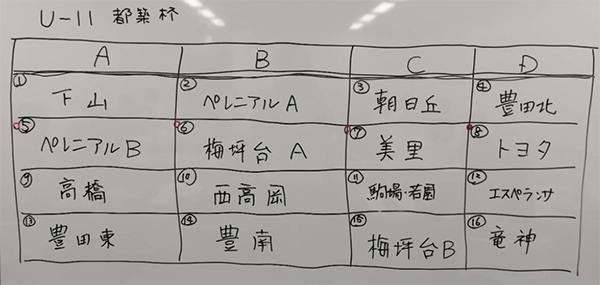 U-11 都築杯
A B C D
① 下山 ② ペレニアル A ③ 朝日丘 ④ 豊田北
⑤ ペレニアル B ⑥ 梅坪台 A ⑦ 美里 ⑧ トヨタ
⑨ 高橋 ⑩ 西高岡 ⑪ 駒場・若園 ⑫ エスペランサ
⑬ 豊田東 ⑭ 豊南 ⑮ 梅坪台 B ⑯ 竜神